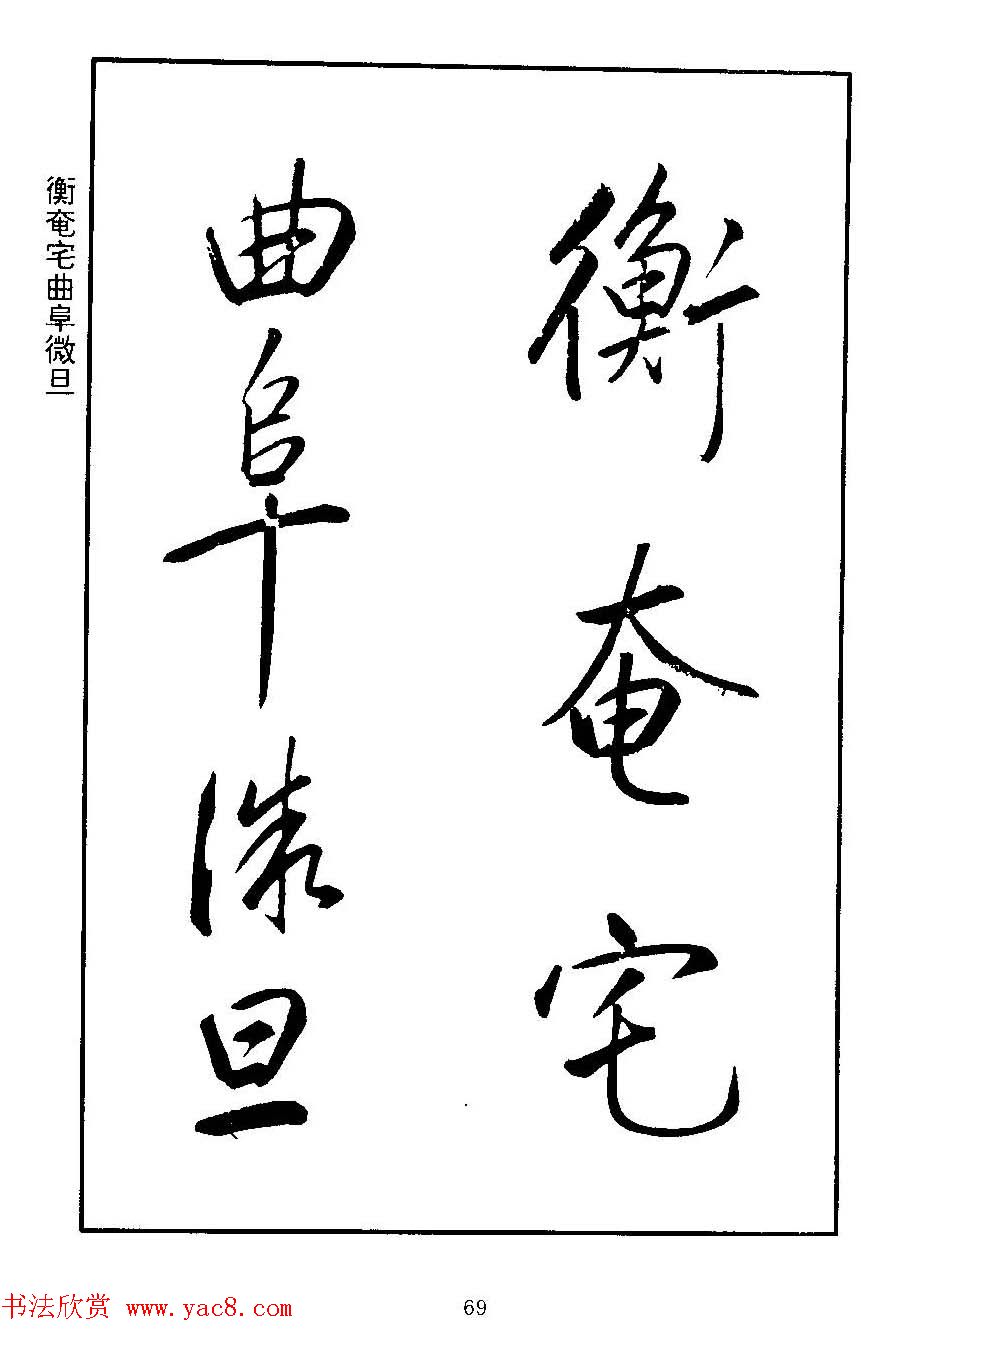 衡奄宅
曲阜微旦
衡奄宅曲阜微旦
书法欣赏 www.yac8.com
69